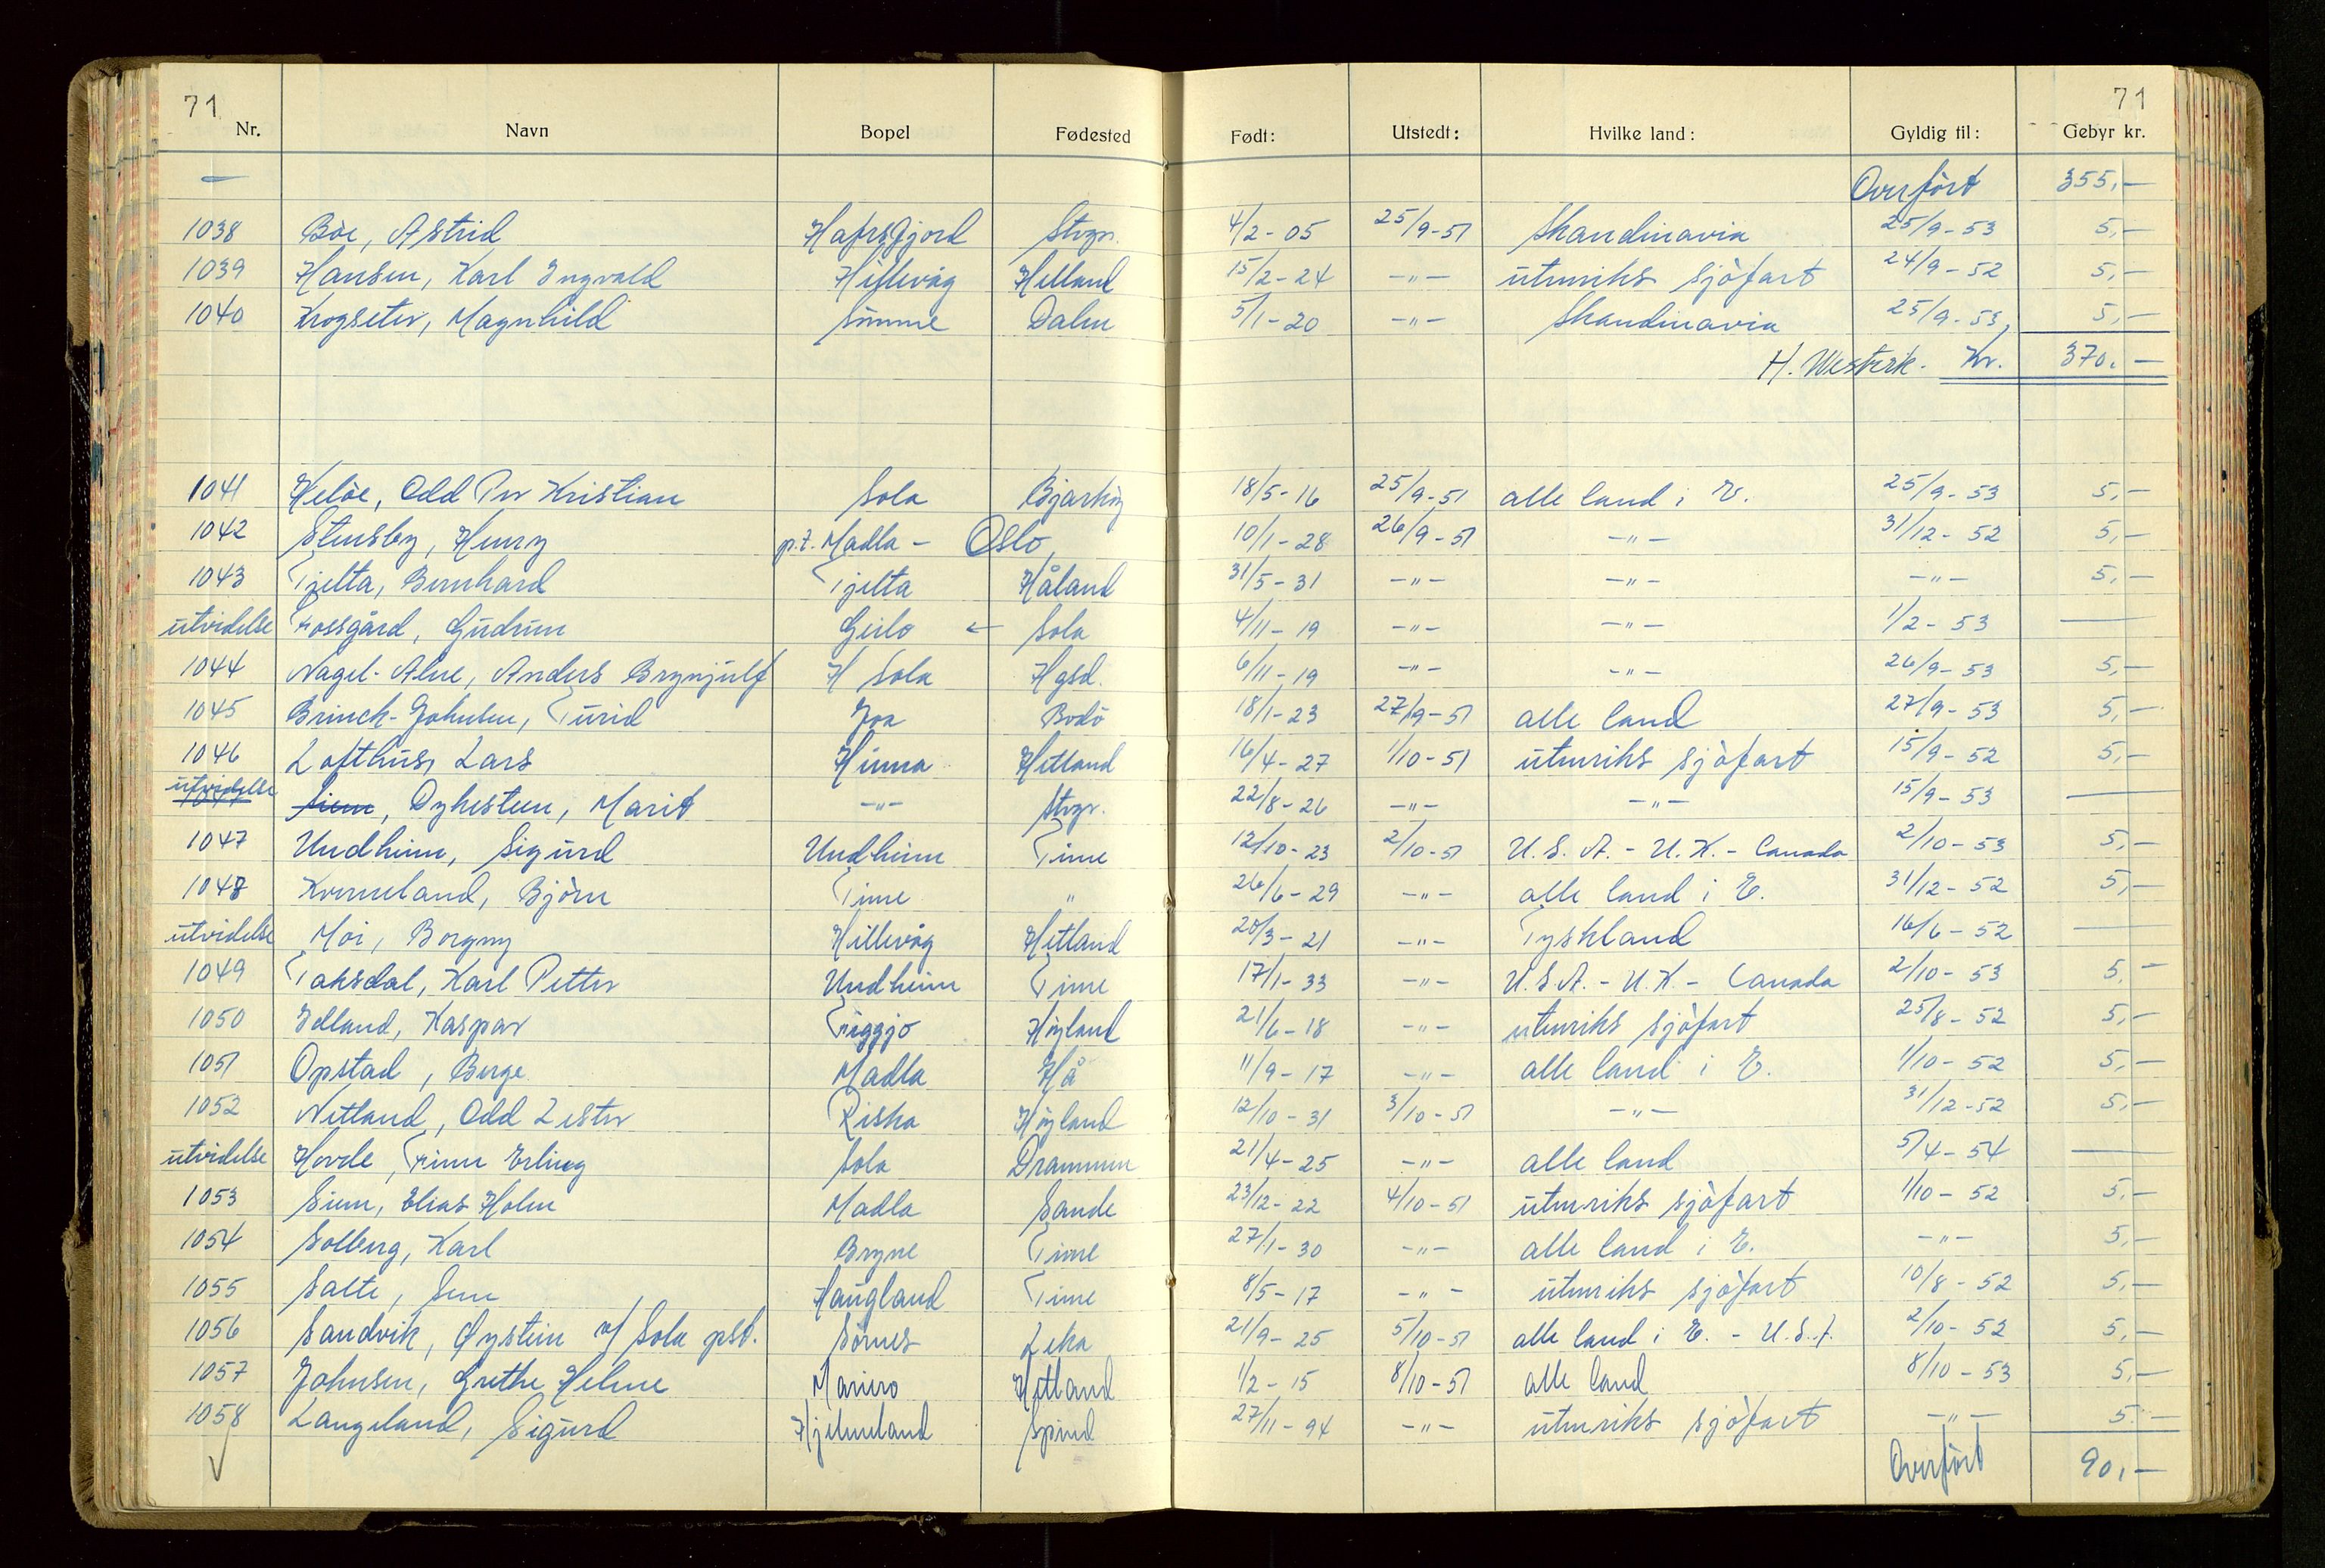 71 71
Nr. Navn Bopel Fødested Født: Utstedt: Hvilke land: Gyldig til: Gebyr kr.
— Overført 355,-
1038 Böe, Astrid Hafrsfjord Stvgr. 4/2-05 25/9-51 Skandinavia 25/9-53 5,-
1039 Hansen, Karl Ingvald Hillevåg Hetland 15/2-24 -"- utenriks sjöfart 24/9-52 5,-
1040 Krogseter, Magnhild Sömme Dalen 5/1-20 -"- Skandinavia 25/9-53, 5,-
H. Westvik. Kr. 370.-
1041 Helöe, Odd Per Kristian Sola Bjarköy 18/5-16 25/9-51 alle land i E. 25/9-53 5,-
1042 Stensby, Henry p.t. Madla - Oslo 10/1-28 26/9-51 -"- 31/12-52 5,-
1043 Tjelta, Bernhard Tjelta Håland 31/5-31 -"- -"- -"- 5,-
utvidelse Fossgård, Gudrun Geilo ← Sola 4/11-19 -"- -"- 1/2-53 —
1044 Nagel-Alne, Anders Brynjulf H Sola Hgsd. 6/11-19 -"- -"- 26/9-53 5,-
1045 Brinck-Johnsen, Turid Joa Bodö 18/1-23 27/9-51 alle land 27/9-53 5,-
1046 Lofthus, Lars Hinna Hetland 16/4-27 1/10-51 utenriks sjöfart 15/9-52 5,-
utvidelse Siem, Dyhesteen, Marit -"- Stvgr. 22/8-26 -"- -"- 15/9-53 —
1047 Undheim, Sigurd Undheim Time 12/10-23 2/10-51 U.S.A.-U.K.-Canada 2/10-53 5,-
1048 Kverneland, Björn Time " 26/6-29 -"- alle land i E. 31/12-52 5,-
utvidelse Moi, Borgny Hillevåg Hetland 20/3-21 -"- Tyskland 16/6-52 —
1049 Taksdal, Karl Petter Undheim Time 17/1-33 -"- U.S.A.-U.K.- Canada 2/10-53 5,-
1050 Edland, Kaspar Figgjo Höyland 21/6-18 -"- utenriks sjöfart 25/8-52 5,-
1051 Opstad, Berge Madla Hå 11/9-17 -"- alle land i E. 1/10-52 5,-
1052 Netland, Odd Lester Riska Höyland 12/10-31 3/10-51 -"- 31/12-52 5,-
utvidelse Hovde, Finn Erling Sola Drammen 21/4-25 -"- alle land 5/4-54 —
1053 Siem, Elias Holm Madla Sande 23/12-22 4/10-51 utenriks sjöfart 1/10-52 5,-
1054 Solberg, Karl Bryne Time 27/1-30 -"- alle land i E. -"- 5,-
1055 Salte, Haugland Time 8/5-17 -"- utenriks sjöfart 10/8-52 5,-
1056 Sandvik, Øystein v/ Sola pst. Sörnes Leka 21/9-25 5/10-51 alle land i E. - U.S.A. 2/10-52 5,-
1057 Johnsen, Grethe Helene Mariero Hetland 1/2-15 8/10-51 alle land 8/10-53 5,-
1058 Langeland, Sigurd Hjelmeland Spind 27/11-94 -"- utenriks sjöfart -"- 5.-
Overført 90,-